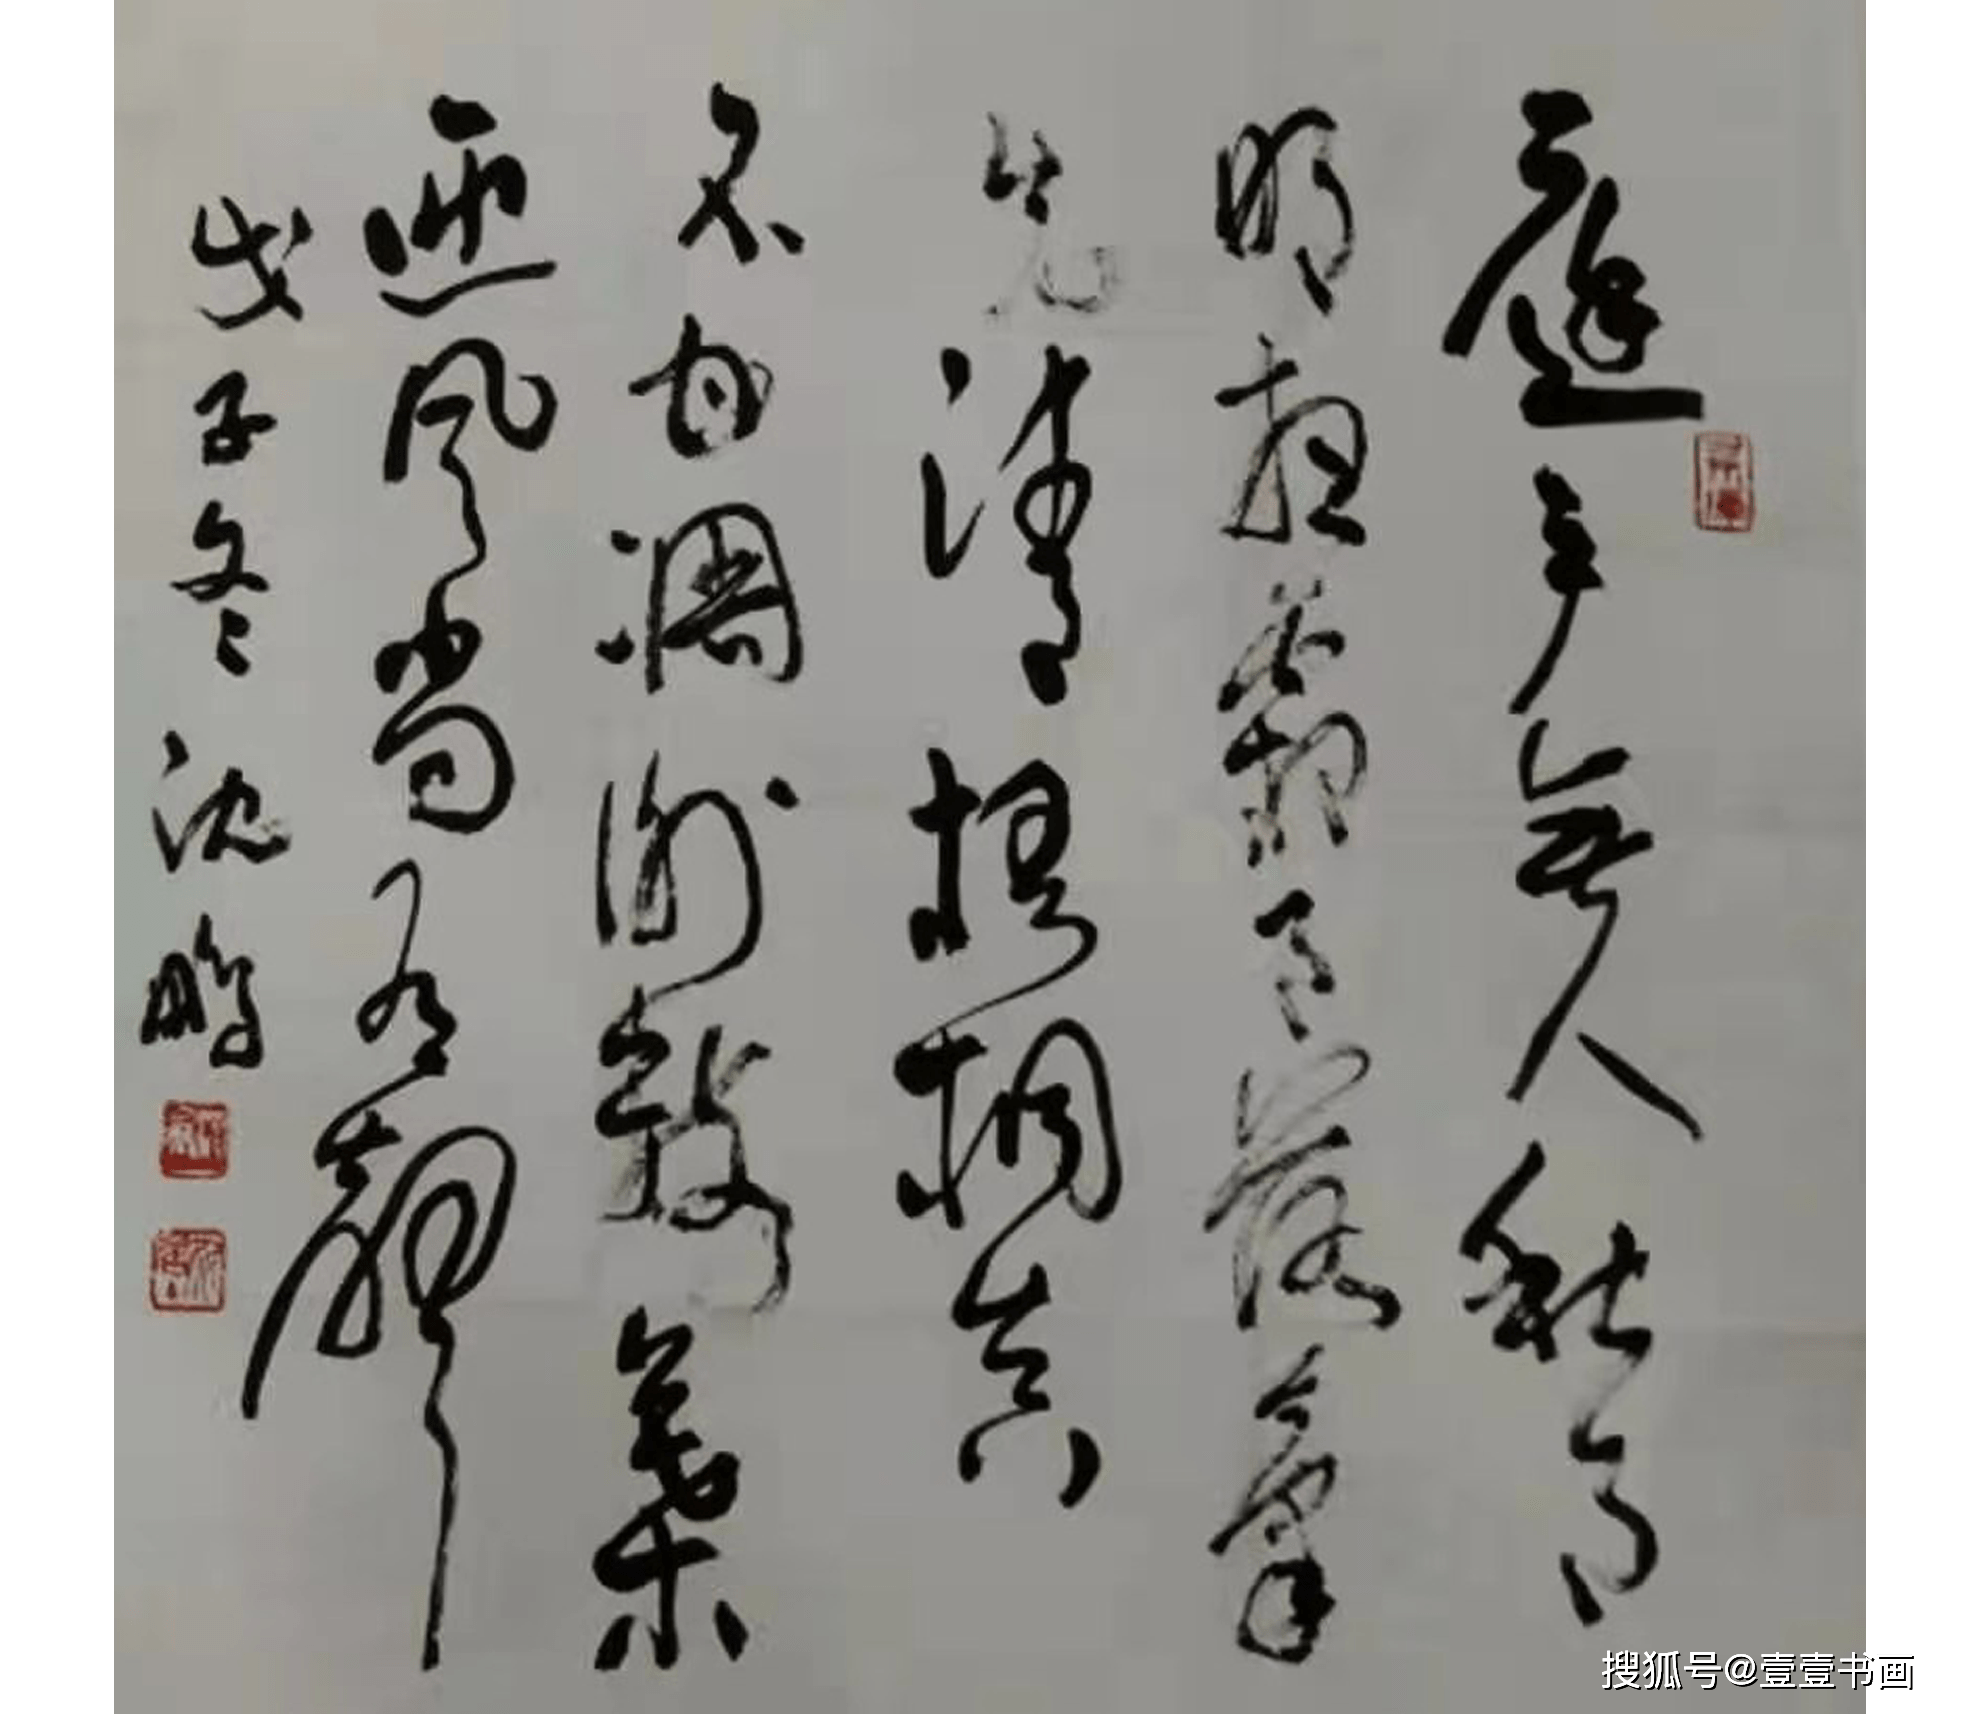 庭户無人秋月
明夜霜欲落氣
先清梧桐真
不甘凋謝數葉
迎風尚有聲
戊子冬 沈鹏
搜狐号@壹壹书画